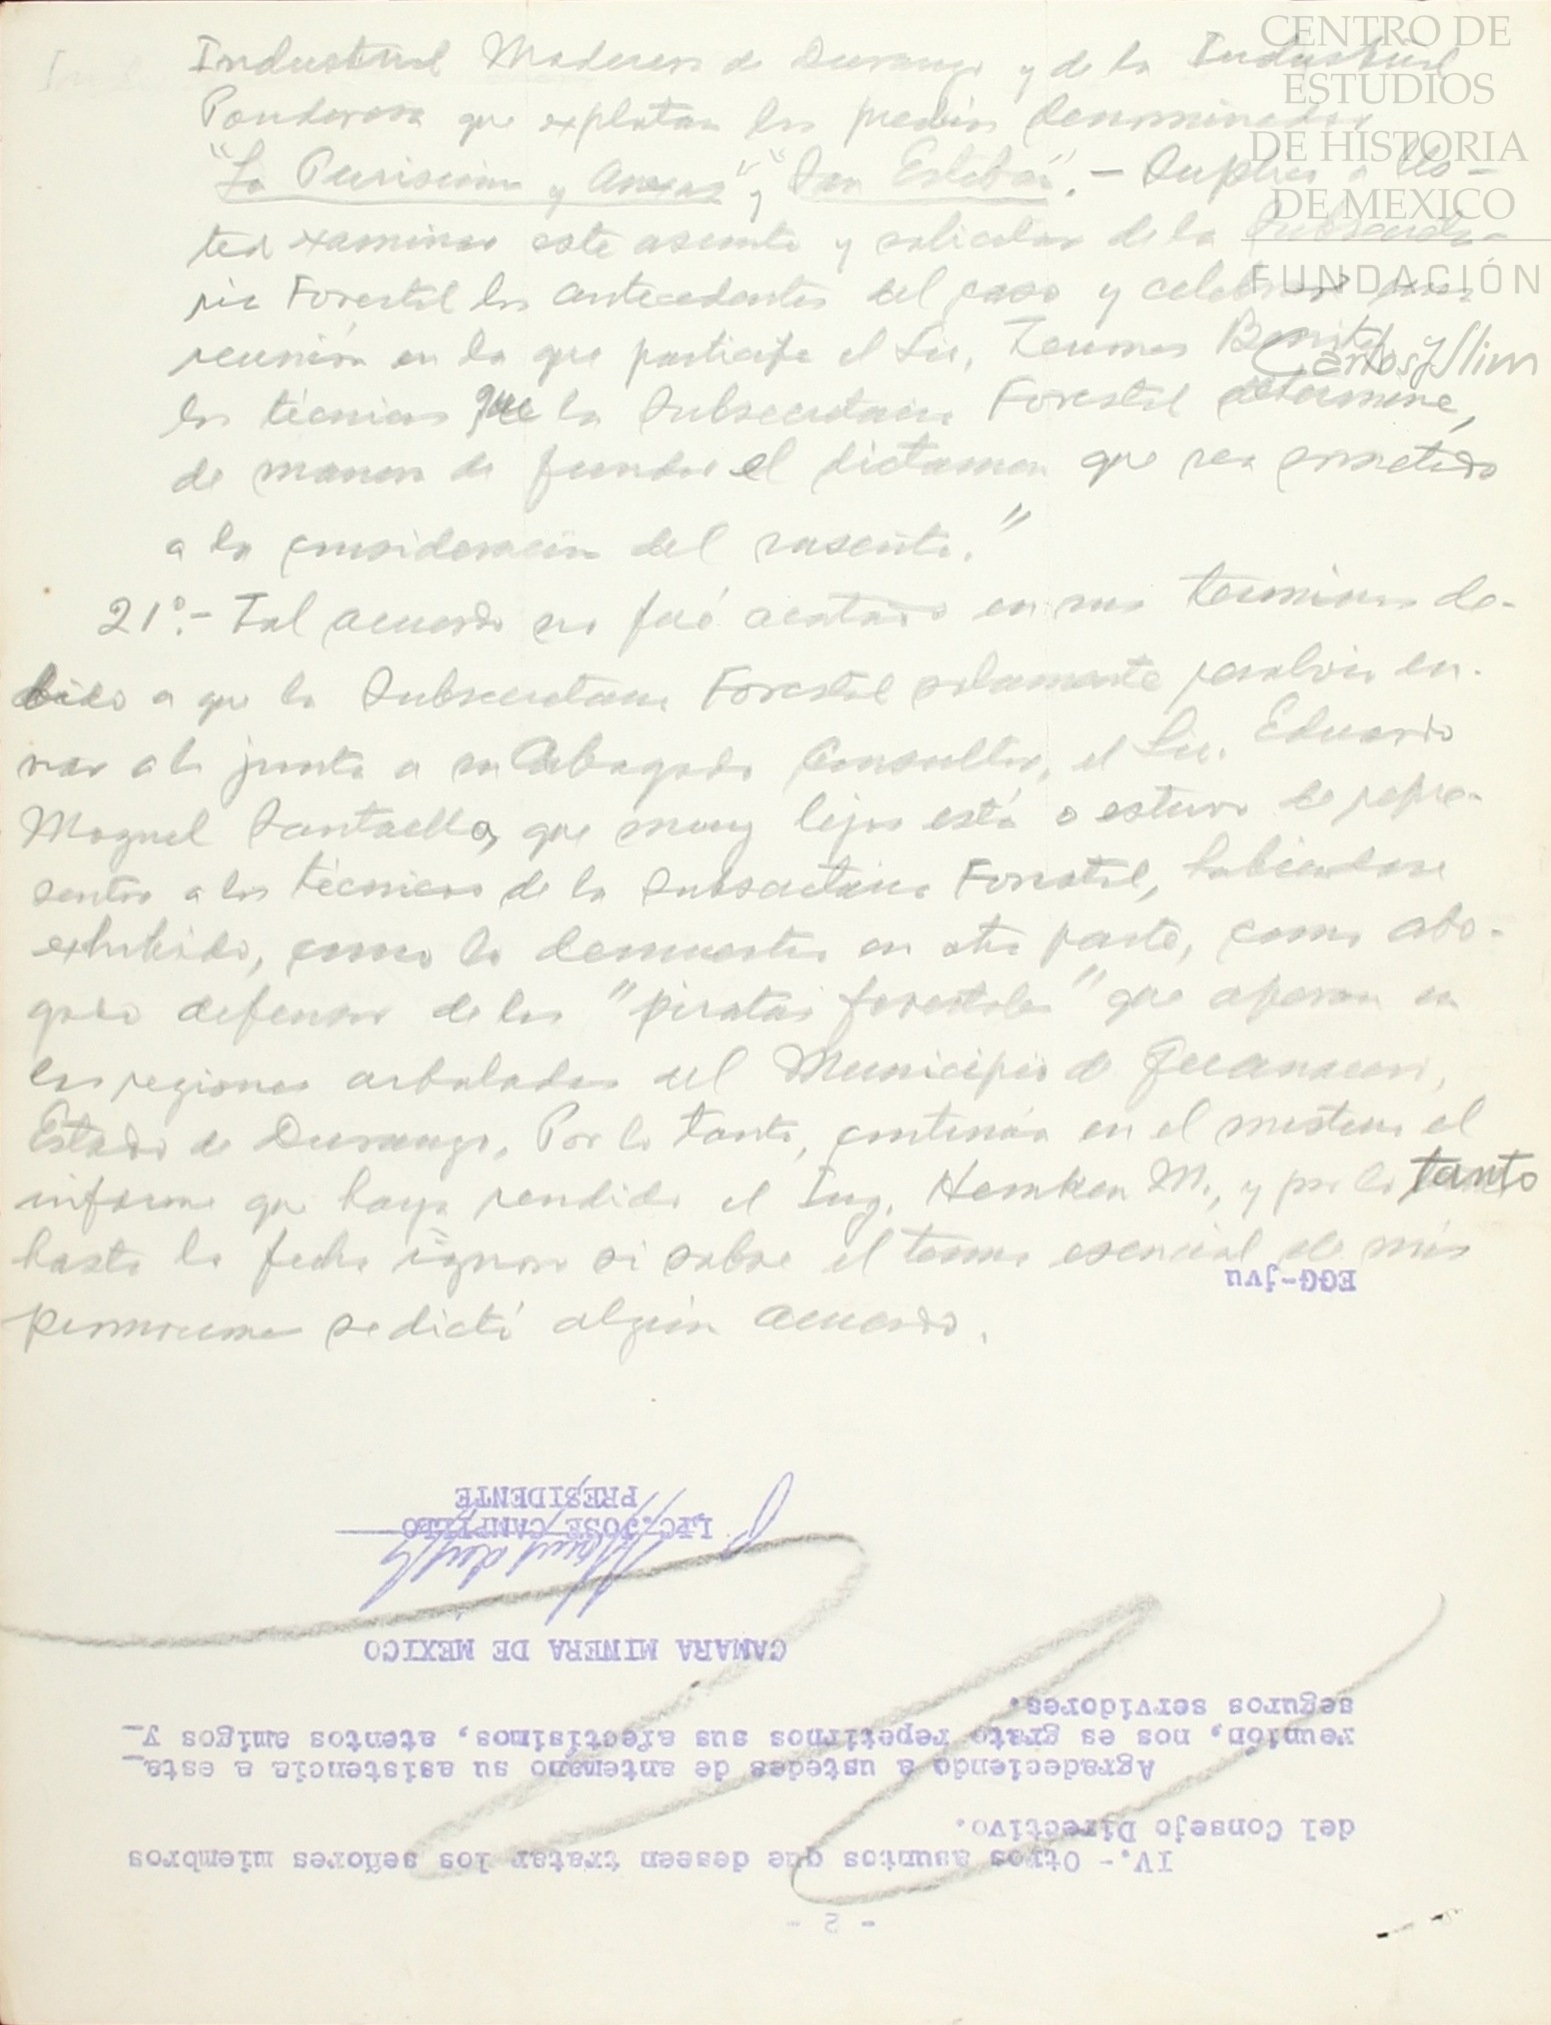 Industrial Maderera de Durango y de la Industrial
Ponderosa que explotan los predios denominados
"La Purísima y Anexas" y "San Esteban".- Suplico a Us-
ted examinar este asunto y solicitar de la Subsecreta-
ria Forestal los antecedentes del caso y celebrar una
reunión en la que participe el Lic. Zaumos Benitez y
los técnicos que la Subsecretaria Forestal determine,
de manera de fundar el dictamen que sea sometido
a la consideración del suscrito."
21°.- Tal acuerdo no fué acatado en sus terminos de-
bido a que la Subsecretaria Forestal solamente resolvió en-
viar a la junta a su Abogado Consultor, el Lic. Eduardo
Moguel Santaella, que muy lejos está o estuvo de repre-
sentar a los técnicos de la Subsecretaria Forestal, habiendose
exhibido, como lo demuestro en otra parte, como abo-
gado defensor de los "piratas forestales" que operan en
las regiones arboladas del Municipio de Guanacevi,
Estado de Durango. Por lo tanto, continúa en el misterio el
informe que haya rendido el Ing. Hemken M., y por lo tanto
hasta la fecha ignoro si sobre el tema esencial de mis
se dictó algún acuerdo.
CENTRO DE
ESTUDIOS
DE HISTORIA
DE MEXICO
FUNDACIÓN
Carlos Slim
- 2 -
IV.- Otros asuntos que deseen tratar los señores miembros
del Consejo Directivo.
Agradeciendo a ustedes de antemano su asistencia a esta
reunión, nos es grato repetirnos sus afectísimos, atentos amigos y
seguros servidores.
CAMARA MINERA DE MEXICO
LIC. JOSE CAMPILLO
PRESIDENTE
EGG-jvu